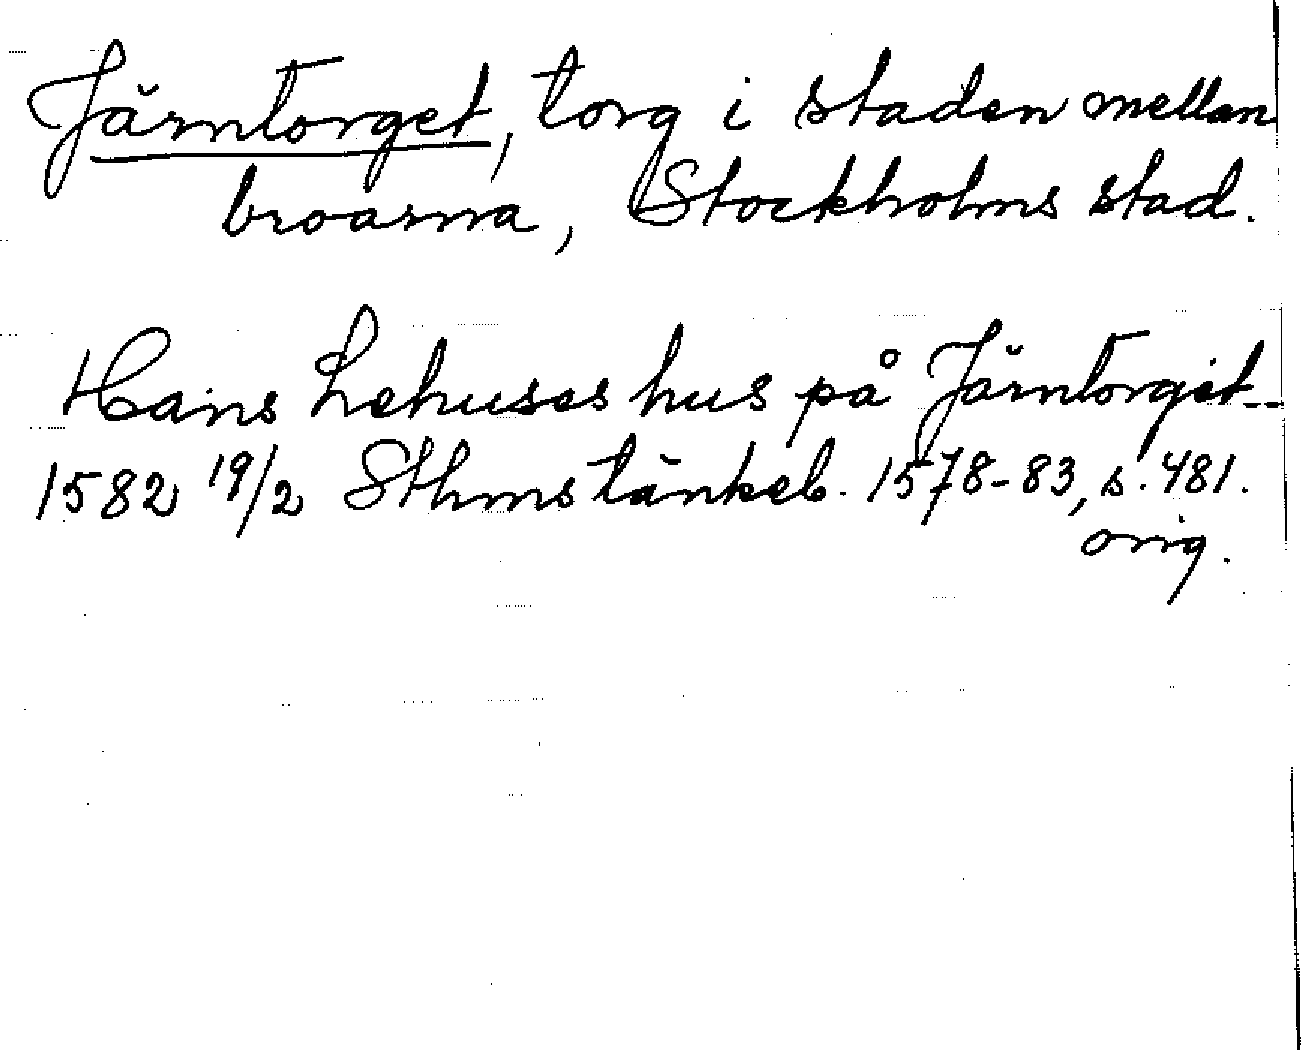 Järntorget, torg i staden mellan
broarna, Stockholms stad.
Hans Lehuses hus på Järntorgit--
1582 19/2 Sthms tänkeb. 1578-83, s. 481.
orig.